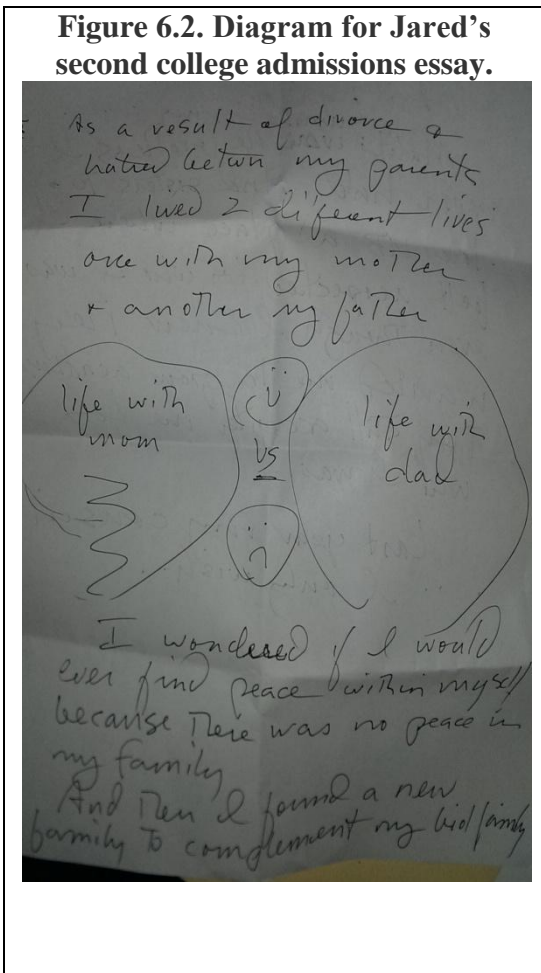 Figure 6.2. Diagram for Jared’s
second college admissions essay.
As a result of divorce &
hatred betwn my parents
I lived 2 different lives
one with my mother
+ another my father
life with
mom
vs
life with
dad
I wondered if I would
ever find peace within myself
because there was no peace in
my family
And then I found a new
family to complement my family